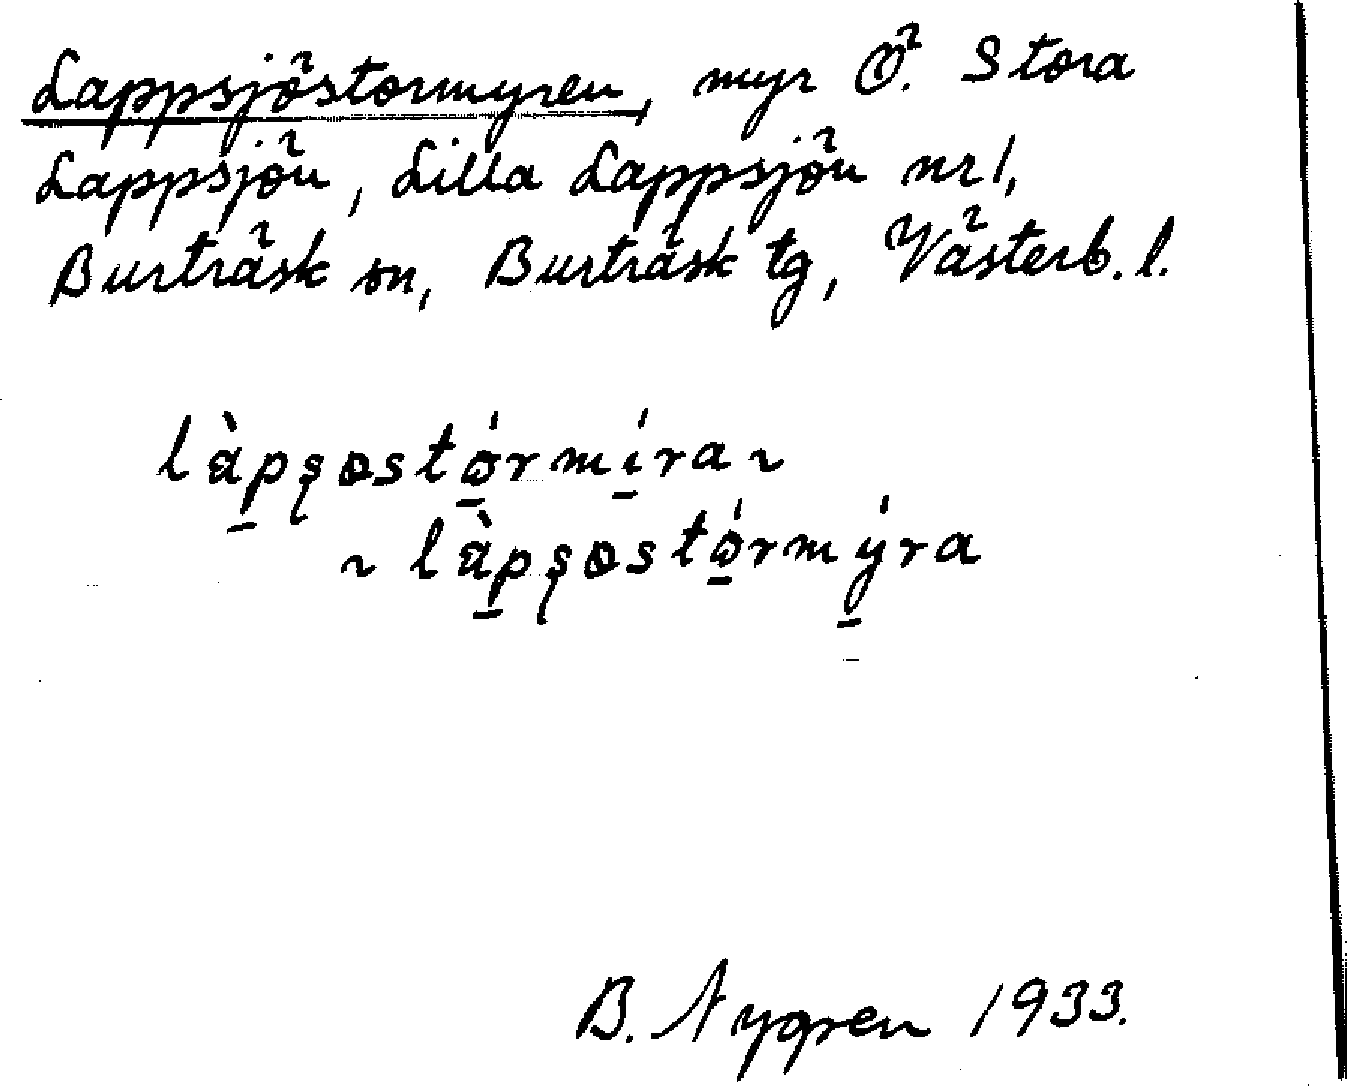 Lappsjöstormyren, myr Ö. Stora
Lappsjön, Lilla Lappsjön nr 1,
Burträsk sn, Burträsk tg, Västerb. l.
là̱pşɵstǿ̱rmí̱ra ~
~ là̱pşɵstǿ̱rmý̱ra
B. Nygren 1933.